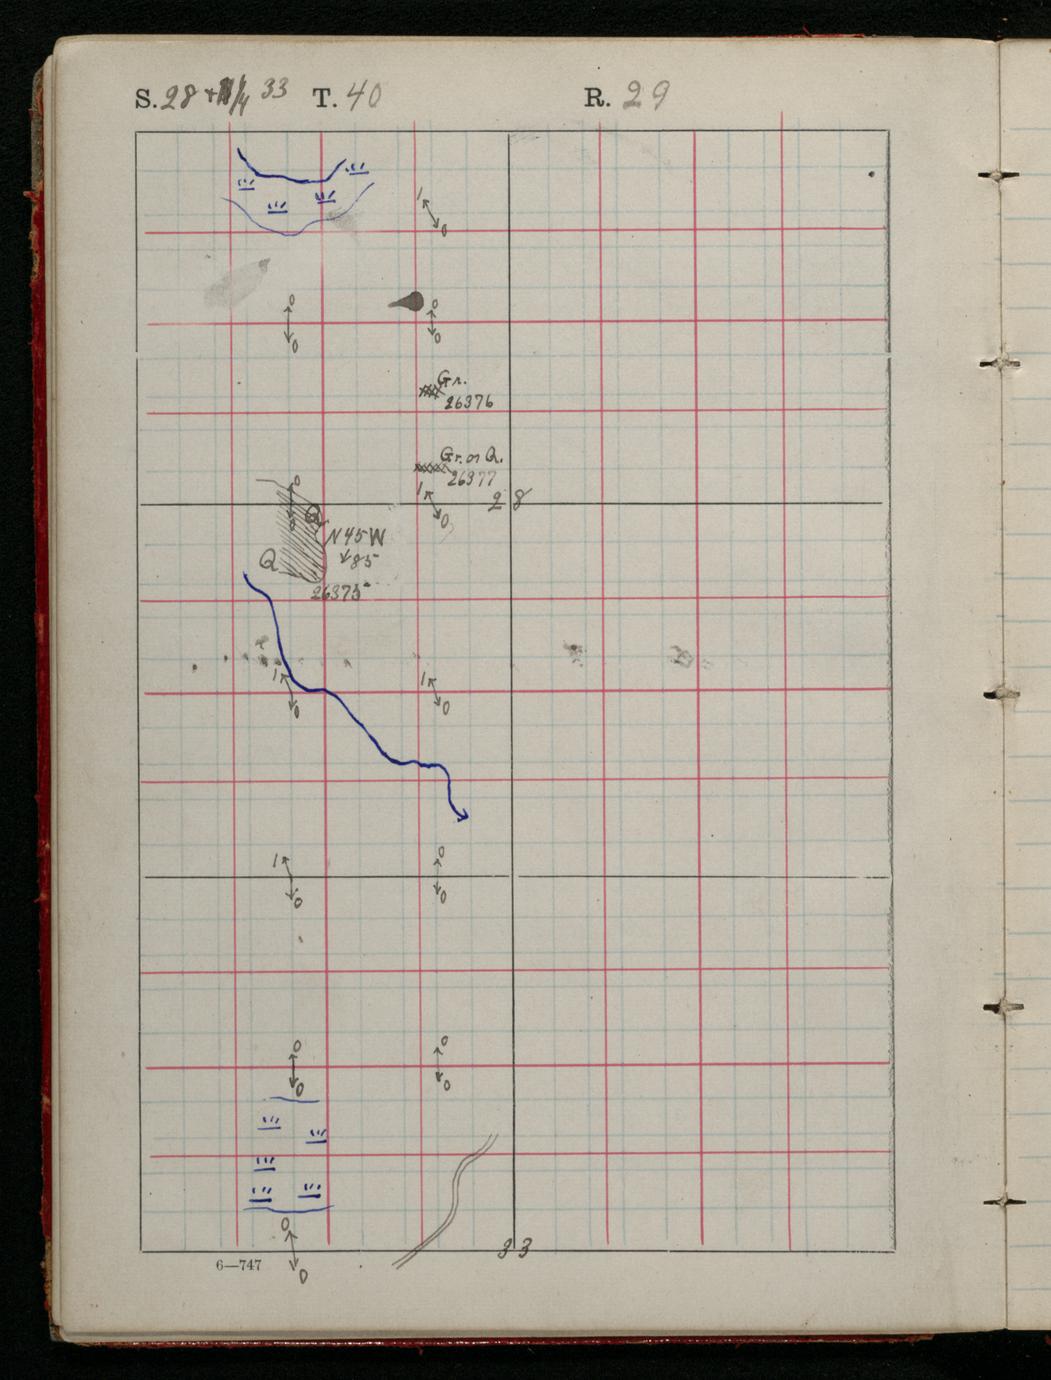 S. 28 + N/4 33 T. 40 R. 29
1
0
0 0
0 0
Gr.
26376
Gr. or Q.
26377
0 1
28
0
Q
N45W
85
Q
26375
1 1
0 0
1 0
0 0
0 0
0 0
0
33
6—747
0